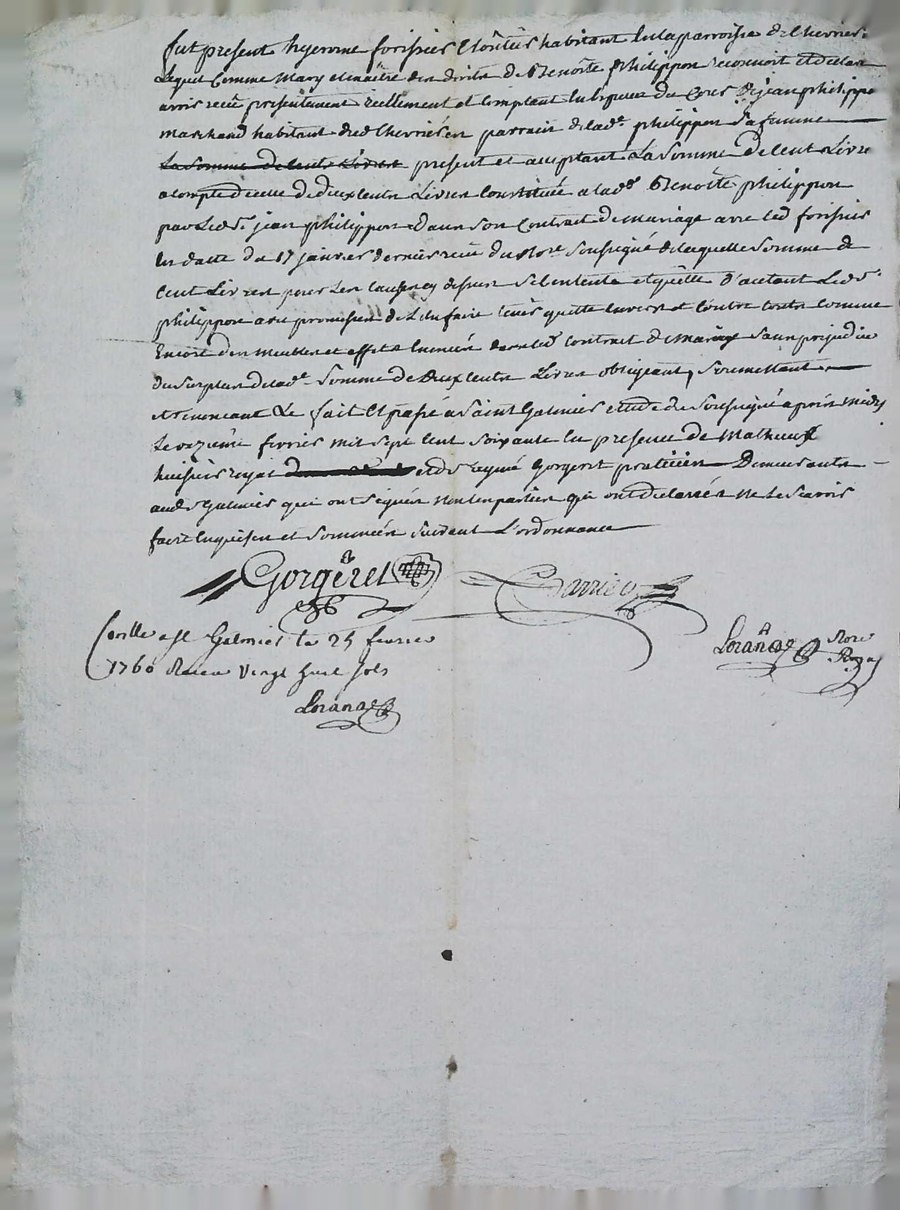 fut present hyerome forissier cloutier habitant en la parroisse de Chevrier.
Lequel Comme Mary et maitre des droits de Benoite philippon reconnoit et declare
avoir receu presentement reellement et comptant en especes du Cours de jean philippon
marchand habitant dud Chevrier en parrain de lad.e philippon sa femme
La Somme de Cent Livres present et acceptant La Somme de Cent Livre
acompte de celle de deux Cents Livres Constituée a lad.e Benoite philippon
par Led S. jean philippon dans son Contrat de mariage avec led forissier
en datte du 17 janvier dernier receu du No.re Soussigné de laquelle Somme de
Cent Livres pour les causes cy dessus Se contente et quitte d'autant Led S.
philippon avec promesse de L'en faire tenir quitte envers et contre touts Comme
Encore des meubles et effets enoncés dans led contrat de mariage Sans prejudice
du Surplus de lad.e Somme de deux Cents Livres obligeant, Soumettant
et renoncant Le fait et passé a Saint Galmier etude du Soussigné apres midy
Le onzieme fevrier mil Sept Cent Soixante en presence de Matheu
huissier royal et de Gorgeret praticien Demeurants
aud S Galmier qui ont signés non les parties qui ont declarées ne le Scavoir
faire enquises et Sommées Suivant L'ordonnance
Gorgéret
Barrieu
Conllé a St Galmier le 25 fevrier
1760 Receu Vingt huit sols
Loranae
Loranae Nore
Royal